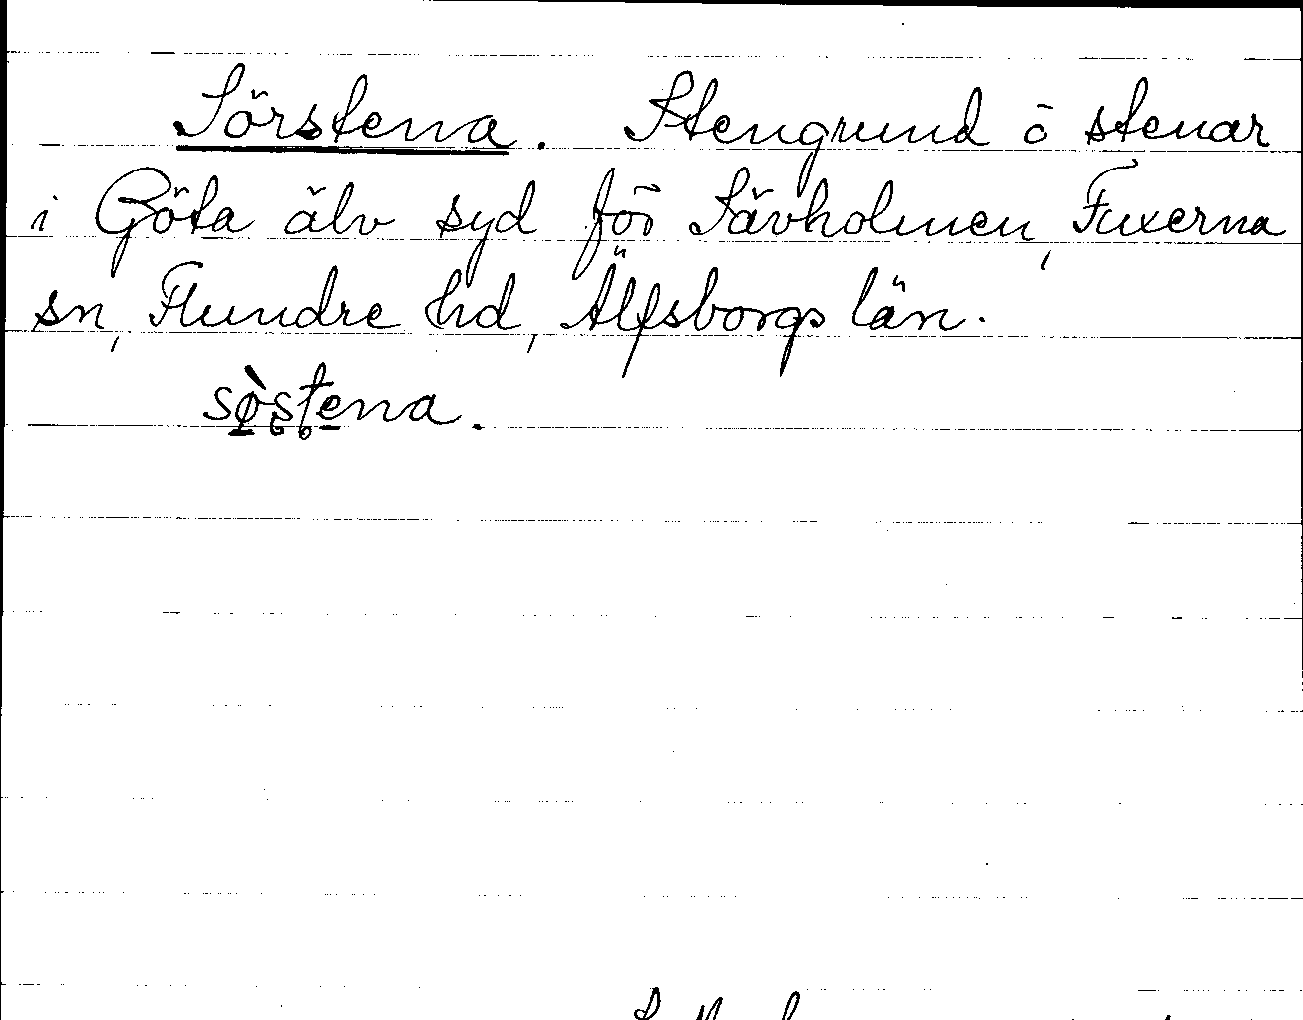 Sörstena. Stengrund o stenar
i Göta älv syd för Sävholmen, Fuxerna
sn, Flundre hd, Älfsborgs län.
sø̀stena.